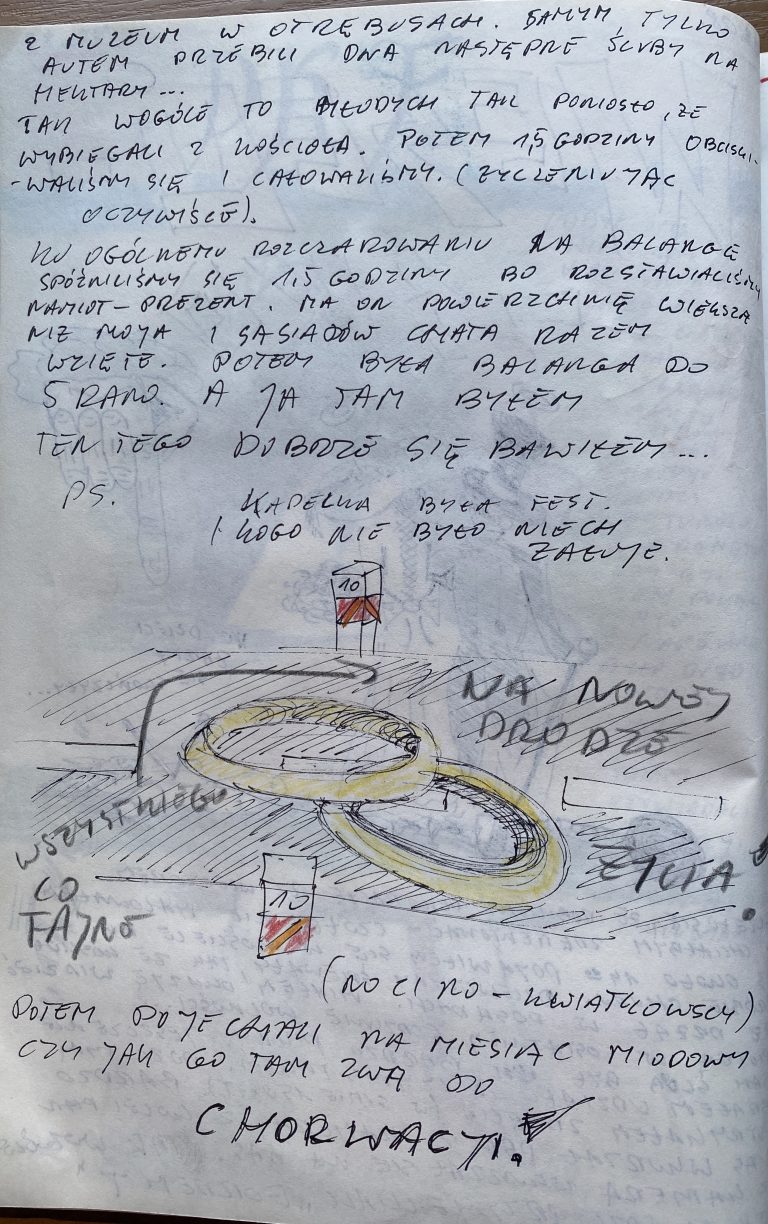 Z MUZEUM W OTRĘBUSACH. SAMYM, TYLKO
AUTEM PRZEBILI DWA NASTĘPNE ŚLUBY NA
HEKTARY...
TAK WOGÓLE TO MŁODYCH TAK PONIOSŁO, ŻE
WYBIEGALI Z KOŚCIOŁA. POTEM 1,5 GODZINY OBCISKI-
-WALIŚMY SIĘ I CAŁOWALIŚMY. (ŻYCZENIUJĄC
OCZYWIŚCIE).
KU OGÓLNEMU ROZCZAROWANIU NA BALANGĘ
SPÓŹNILIŚMY SIĘ 1,5 GODZINY BO ROZSTAWIALIŚMY
NAMIOT-PREZENT. MA ON POWIERZCHNIĘ WIĘKSZĄ
NIŻ MOJA I SĄSIADÓW CHATA RAZEM
WZIĘTE. POTEM BYŁA BALANGA DO
5 RANO. A JA TAM BYŁEM
TEN TEGO DOBRZE SIĘ BAWIŁEM...
PS. KAPELKA BYŁA FEST.
I KOGO NIE BYŁO NIECH
ŻAŁUJE.
10
NA NOWEJ
DRODZE
WSZYSTKIEGO
CO
FAJNE
ŻYCIA!
10
(NOCI NO-KWIATKOWSCY)
POTEM POJECHALI NA MIESIĄC MIODOWY
CZY JAK GO TAM ZWĄ DO
CHORWACJI.